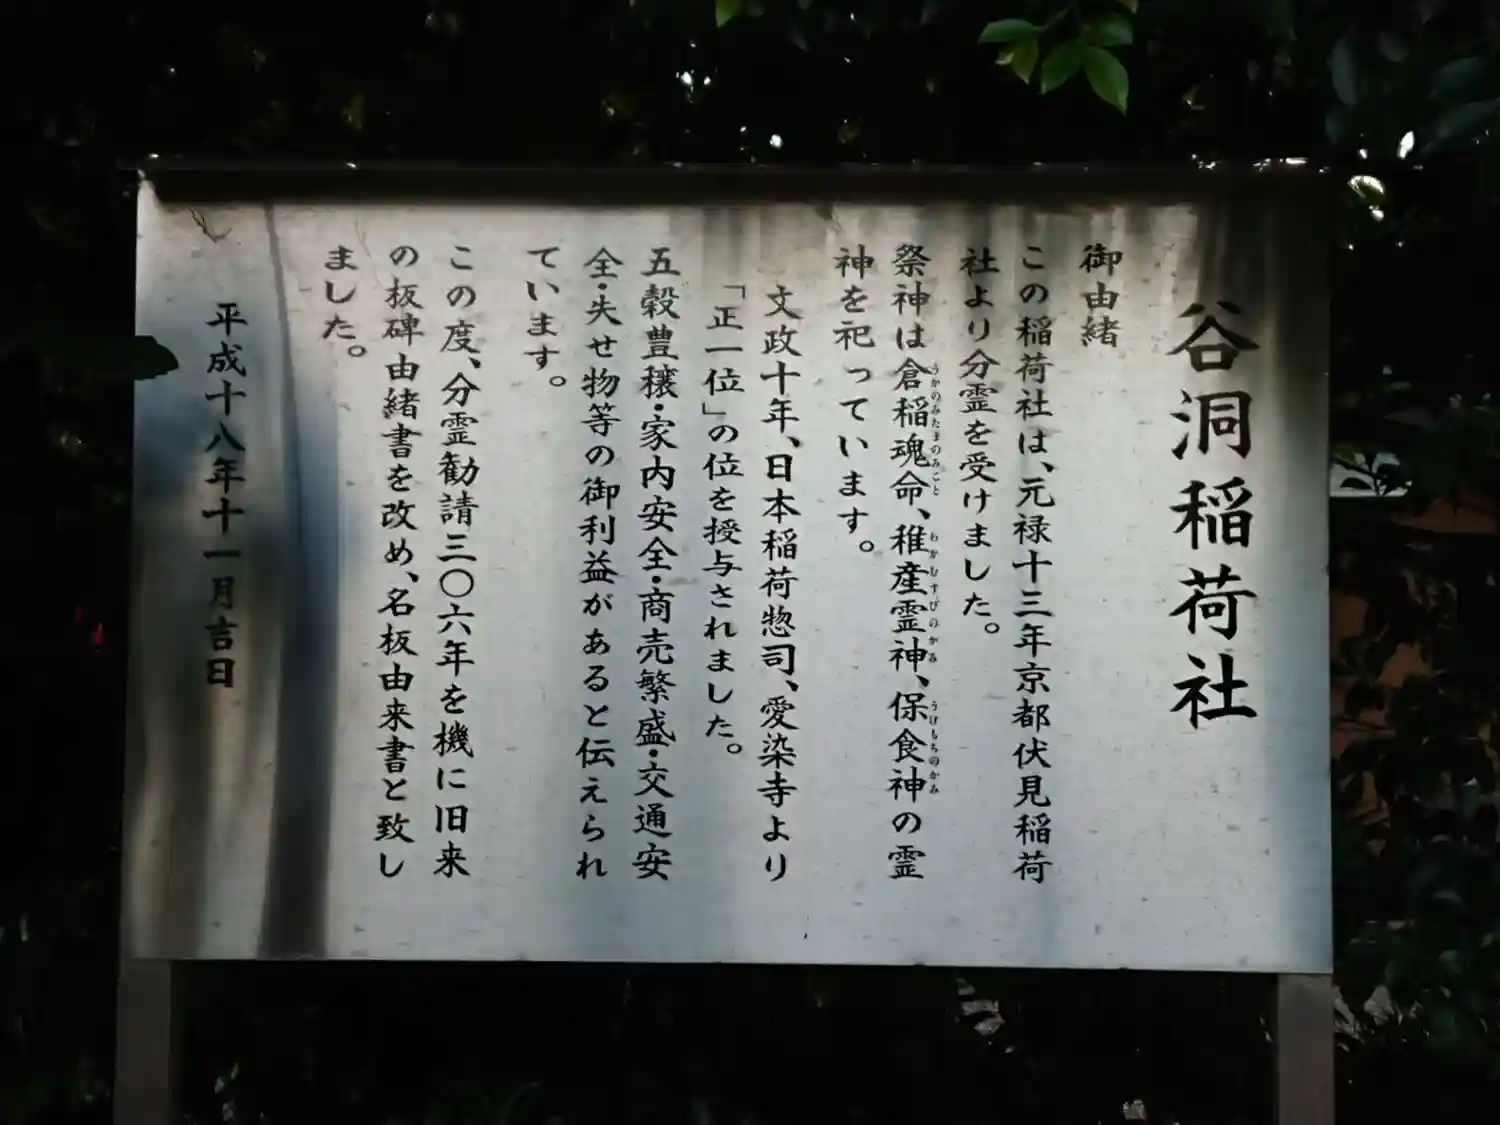 谷洞稲荷社
御由緒
この稲荷社は、元禄十三年京都伏見稲荷
社より分霊を受けました。
祭神は倉稲魂命、稚産霊神、保食神の霊
うかのみたまのみこと
わかむすびのかみ
うけもちのかみ
神を祀っています。
文政十年、日本稲荷惣司、愛染寺より
「正一位」の位を授与されました。
五穀豊穣・家内安全・商売繁盛・交通安
全・失せ物等の御利益があると伝えられ
ています。
この度、分霊勧請三〇六年を機に旧来
の板碑由緒書を改め、名板由来書と致し
ました。
平成十八年十一月吉日